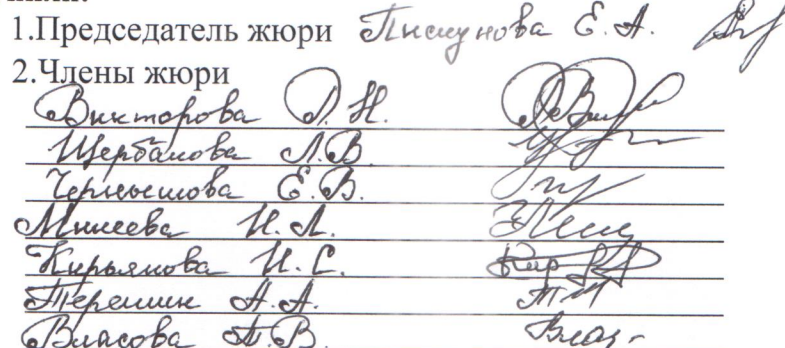 1.Председатель жюри Пискунова Е. А.
2.Члены жюри
Викторова Л. Н.
Щербакова Л.В.
Чернышова Е.В.
Минеева Н. А.
Кирьянова И. С.
Терешин А. А.
Власова Т.В.